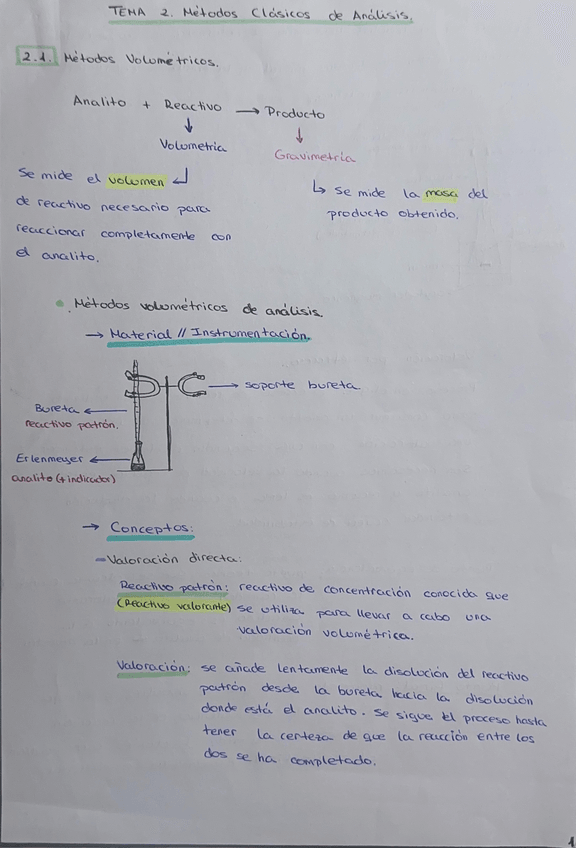 TEMA 2. Métodos Clásicos de Análisis.
2.1. Métodos Volumétricos.
Analito + Reactivo → Producto
Volumetría
Gravimetría
Se mide el volumen
de reactivo necesario para
reaccionar completamente con
el analito.
Se mide la masa del
producto obtenido.
Métodos volumétricos de análisis.
→ Material // Instrumentación.
soporte bureta
Bureta
reactivo patrón.
Erlenmeyer
analito (+ indicador)
→ Conceptos:
- Valoración directa:
Reactivo patrón: reactivo de concentración conocida que
(Reactivo valorante) se utiliza para llevar a cabo una
valoración volumétrica.
Valoración: se añade lentamente la disolución del reactivo
patrón desde la bureta hacia la disolución
donde está el analito. Se sigue el proceso hasta
tener la certeza de que la reacción entre los
dos se ha completado.
1